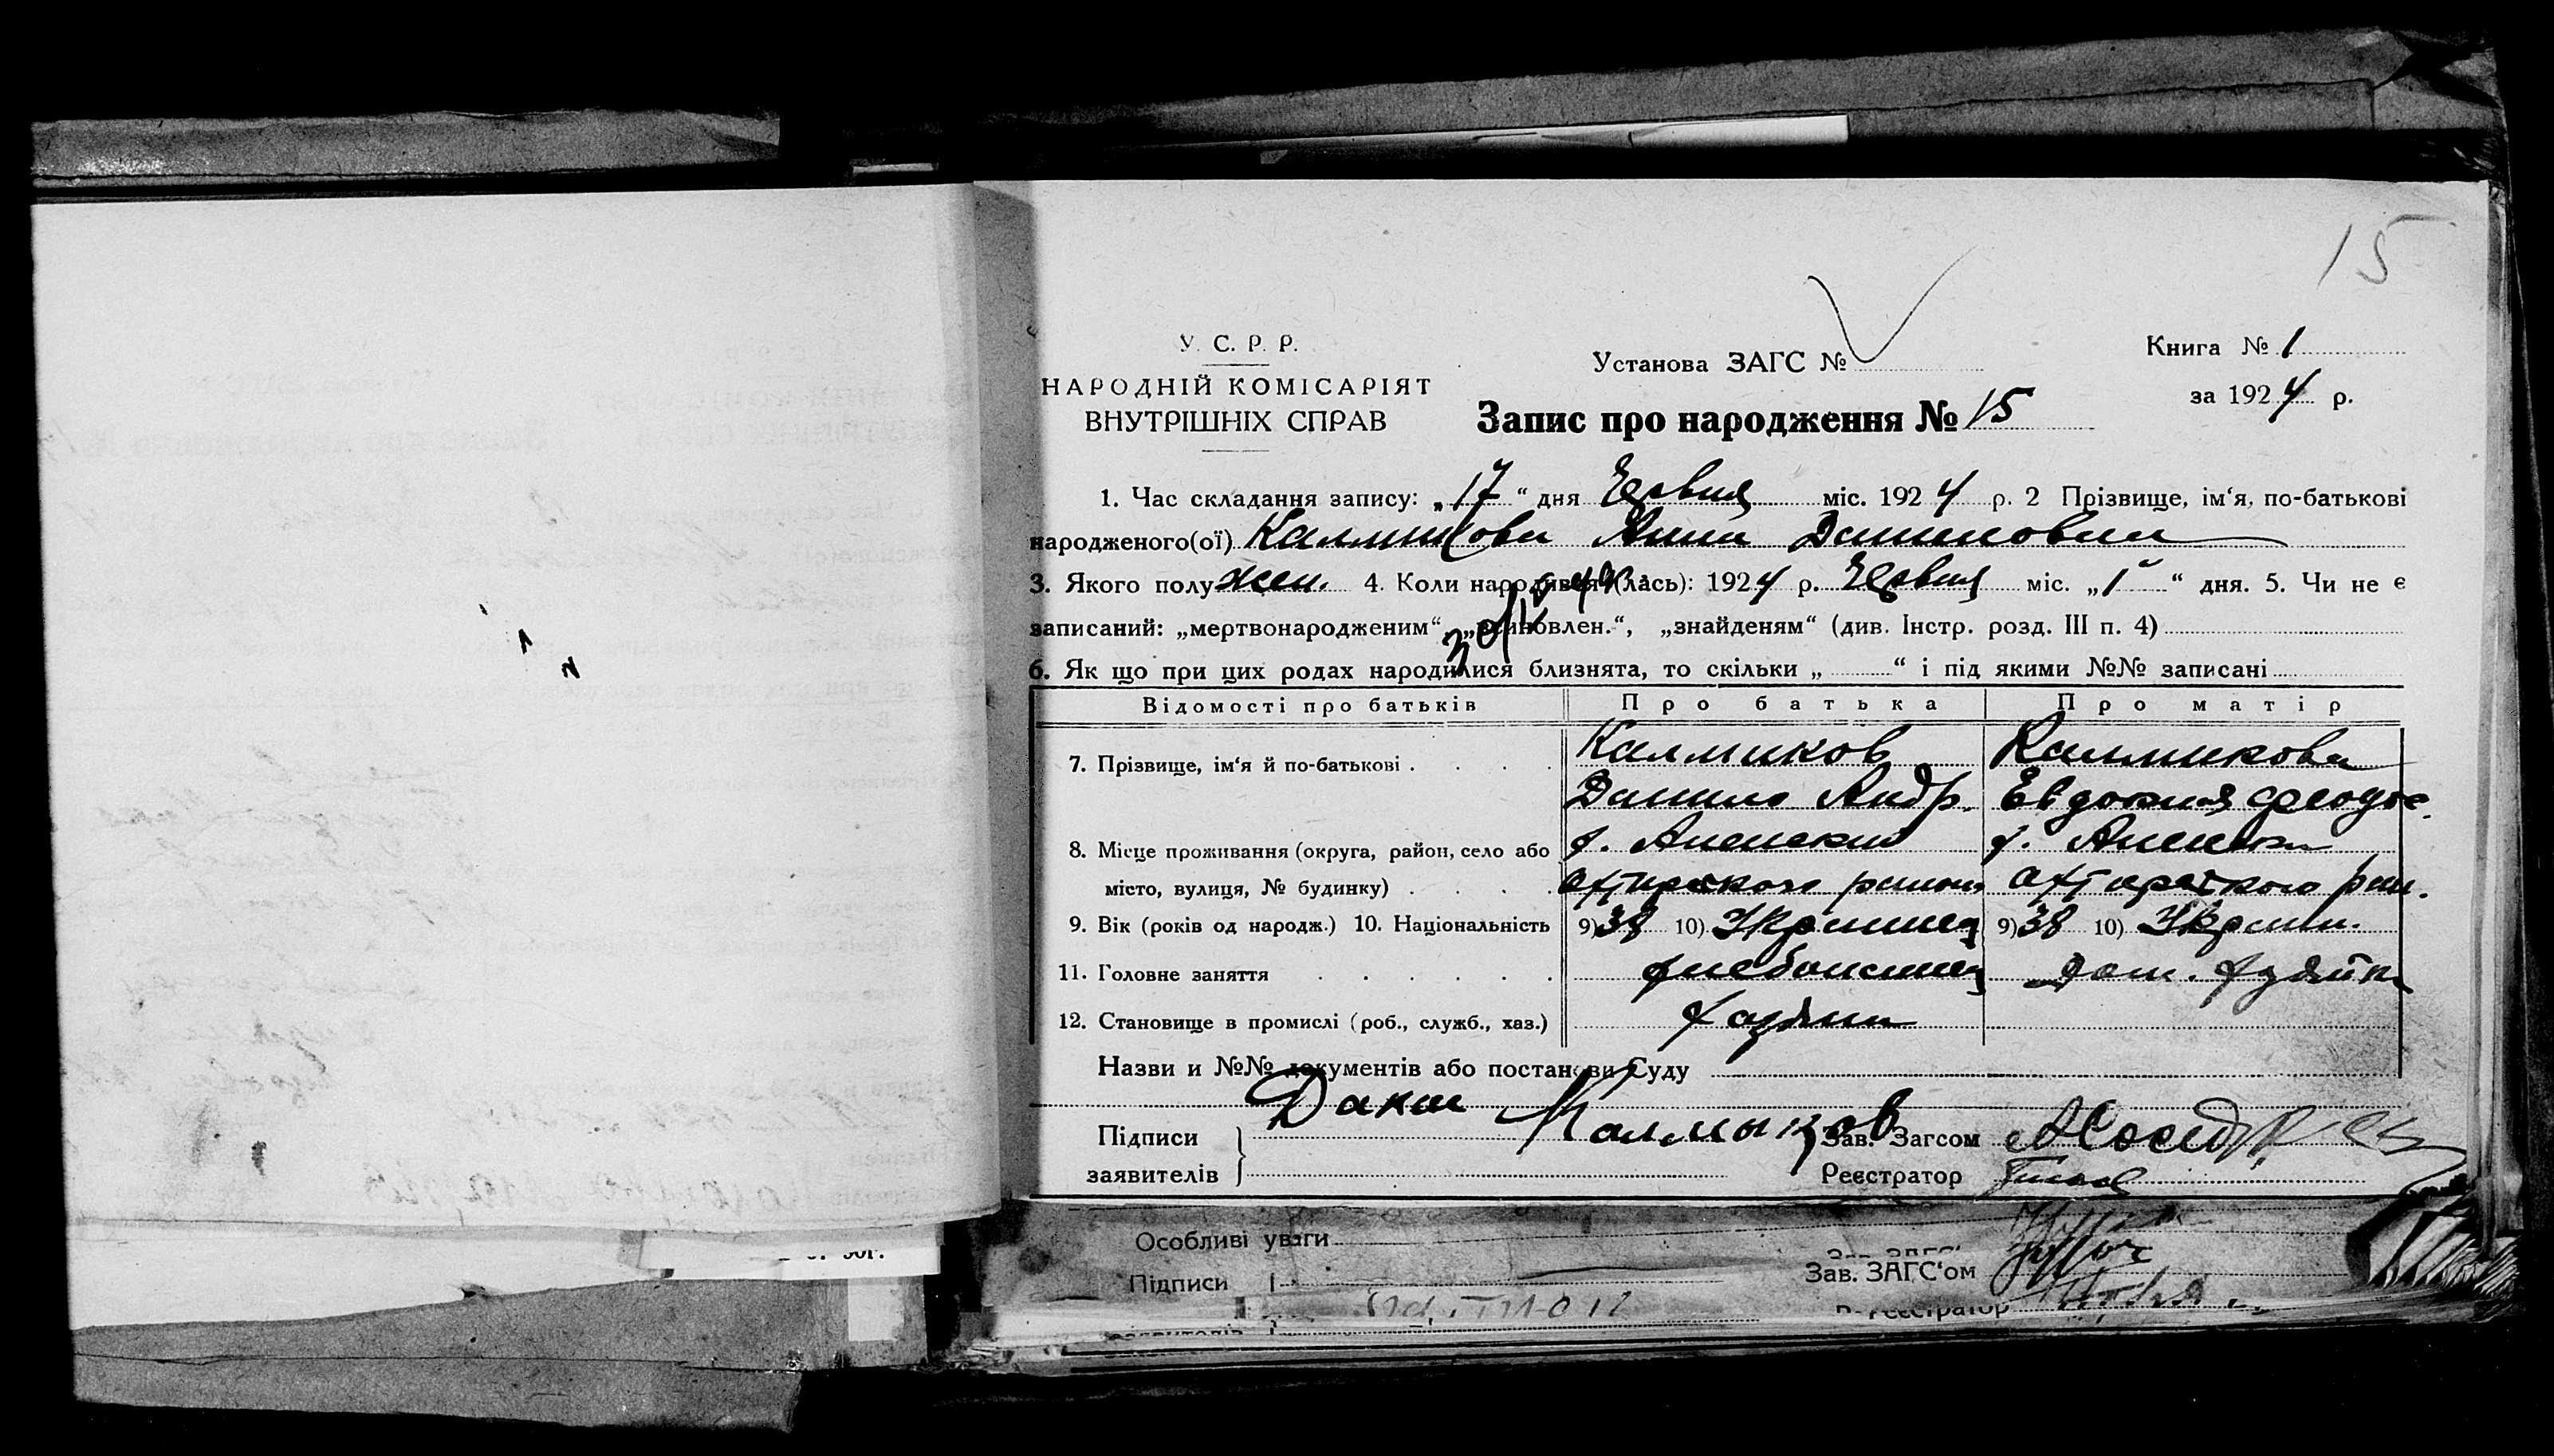 15
У. С. Р. Р.
НАРОДНІЙ КОМІСАРІЯТ
ВНУТРІШНІХ СПРАВ
Установа ЗАГС №
Запис про народження № 15
Книга № 1
за 1924 р.
1. Час складання запису: „17“ дня Червня міс. 1924 р. 2 Прізвище, ім‘я, по-батькові
народженого(ої) Калмикова Анна Даниловна
3. Якого полу жен. 4. Коли народився (лась): 1924 р. Червня міс. „1“ дня. 5. Чи не є
записаний: „мертвонародженим“, „всиновлен.“, „знайденям“ (див. Інстр. розд. III п. 4)
6. Як що при цих родах народилися близнята, то скільки „ “ і під якими №№ записані
Відомості про батьків Про батька Про матір
7. Прізвище, ім‘я й по-батькові Калмиков Калмикова
Данило Андр. Евдокия Феодос.
8. Місце проживання (округа, район, село або х. х.
місто, вулиця, № будинку) Охтирского району Охтирского рай.
9. Вік (років од народж.) 10. Національність 9) 38 10) Украинец 9) 38 10) Украин.
11. Головне заняття хлебопашец дом. хузяйка
12. Становище в промислі (роб., служб., хаз.) Хозяин
Назви и №№ документів або постанови Суду
Данил Калмыков
Підписи
заявителів
Зав. Загсом
Реєстратор
Особливі уваги
Підписи
Зав. ЗАГС‘ом
Реєстратор